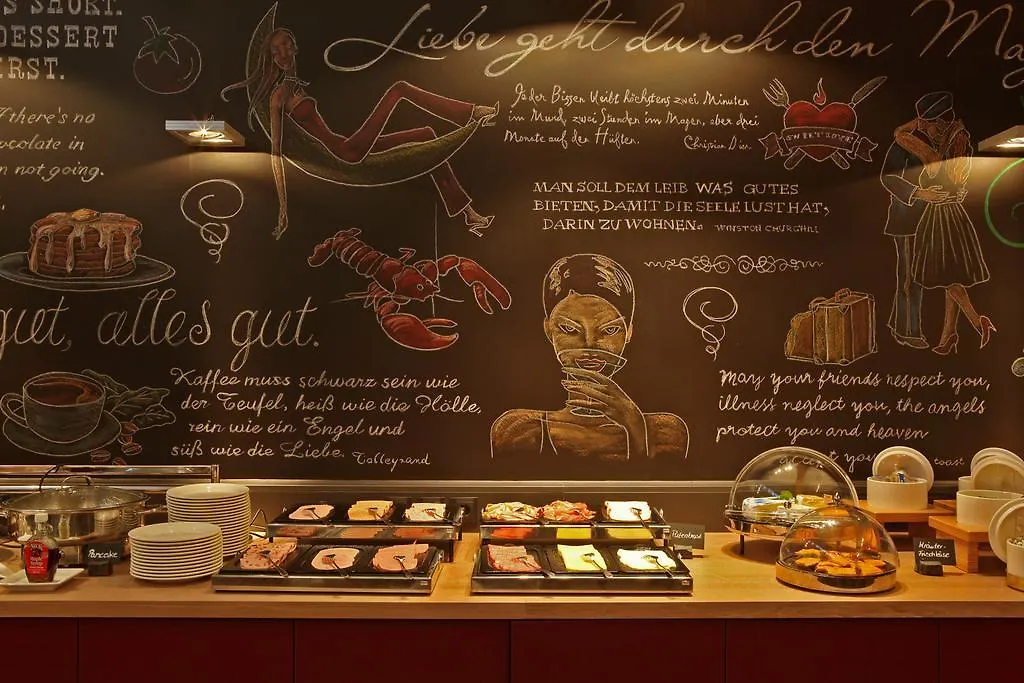 S SHORT.
DESSERT
RST.
Liebe geht durch den Mag
there's no
ocolate in
n not going.
Jeder Bissen bleibt höchstens zwei Minuten
im Mund, zwei Stunden im Magen, aber drei
Monate auf den Hüften. Christian Dior
SWEET LOVE
MAN SOLL DEM LEIB WAS GUTES
BIETEN, DAMIT DIE SEELE LUST HAT,
DARIN ZU WOHNEN. WINSTON CHURCHILL
gut, alles gut.
Kaffee muss schwarz sein wie
der Teufel, heiß wie die Hölle,
rein wie ein Engel und
süß wie die Liebe. Talleyrand
May your friends respect you,
illness neglect you, the angels
protect you and heaven
accept you toast
Pancake
Putenbrust
Kräuter-
frischkäse